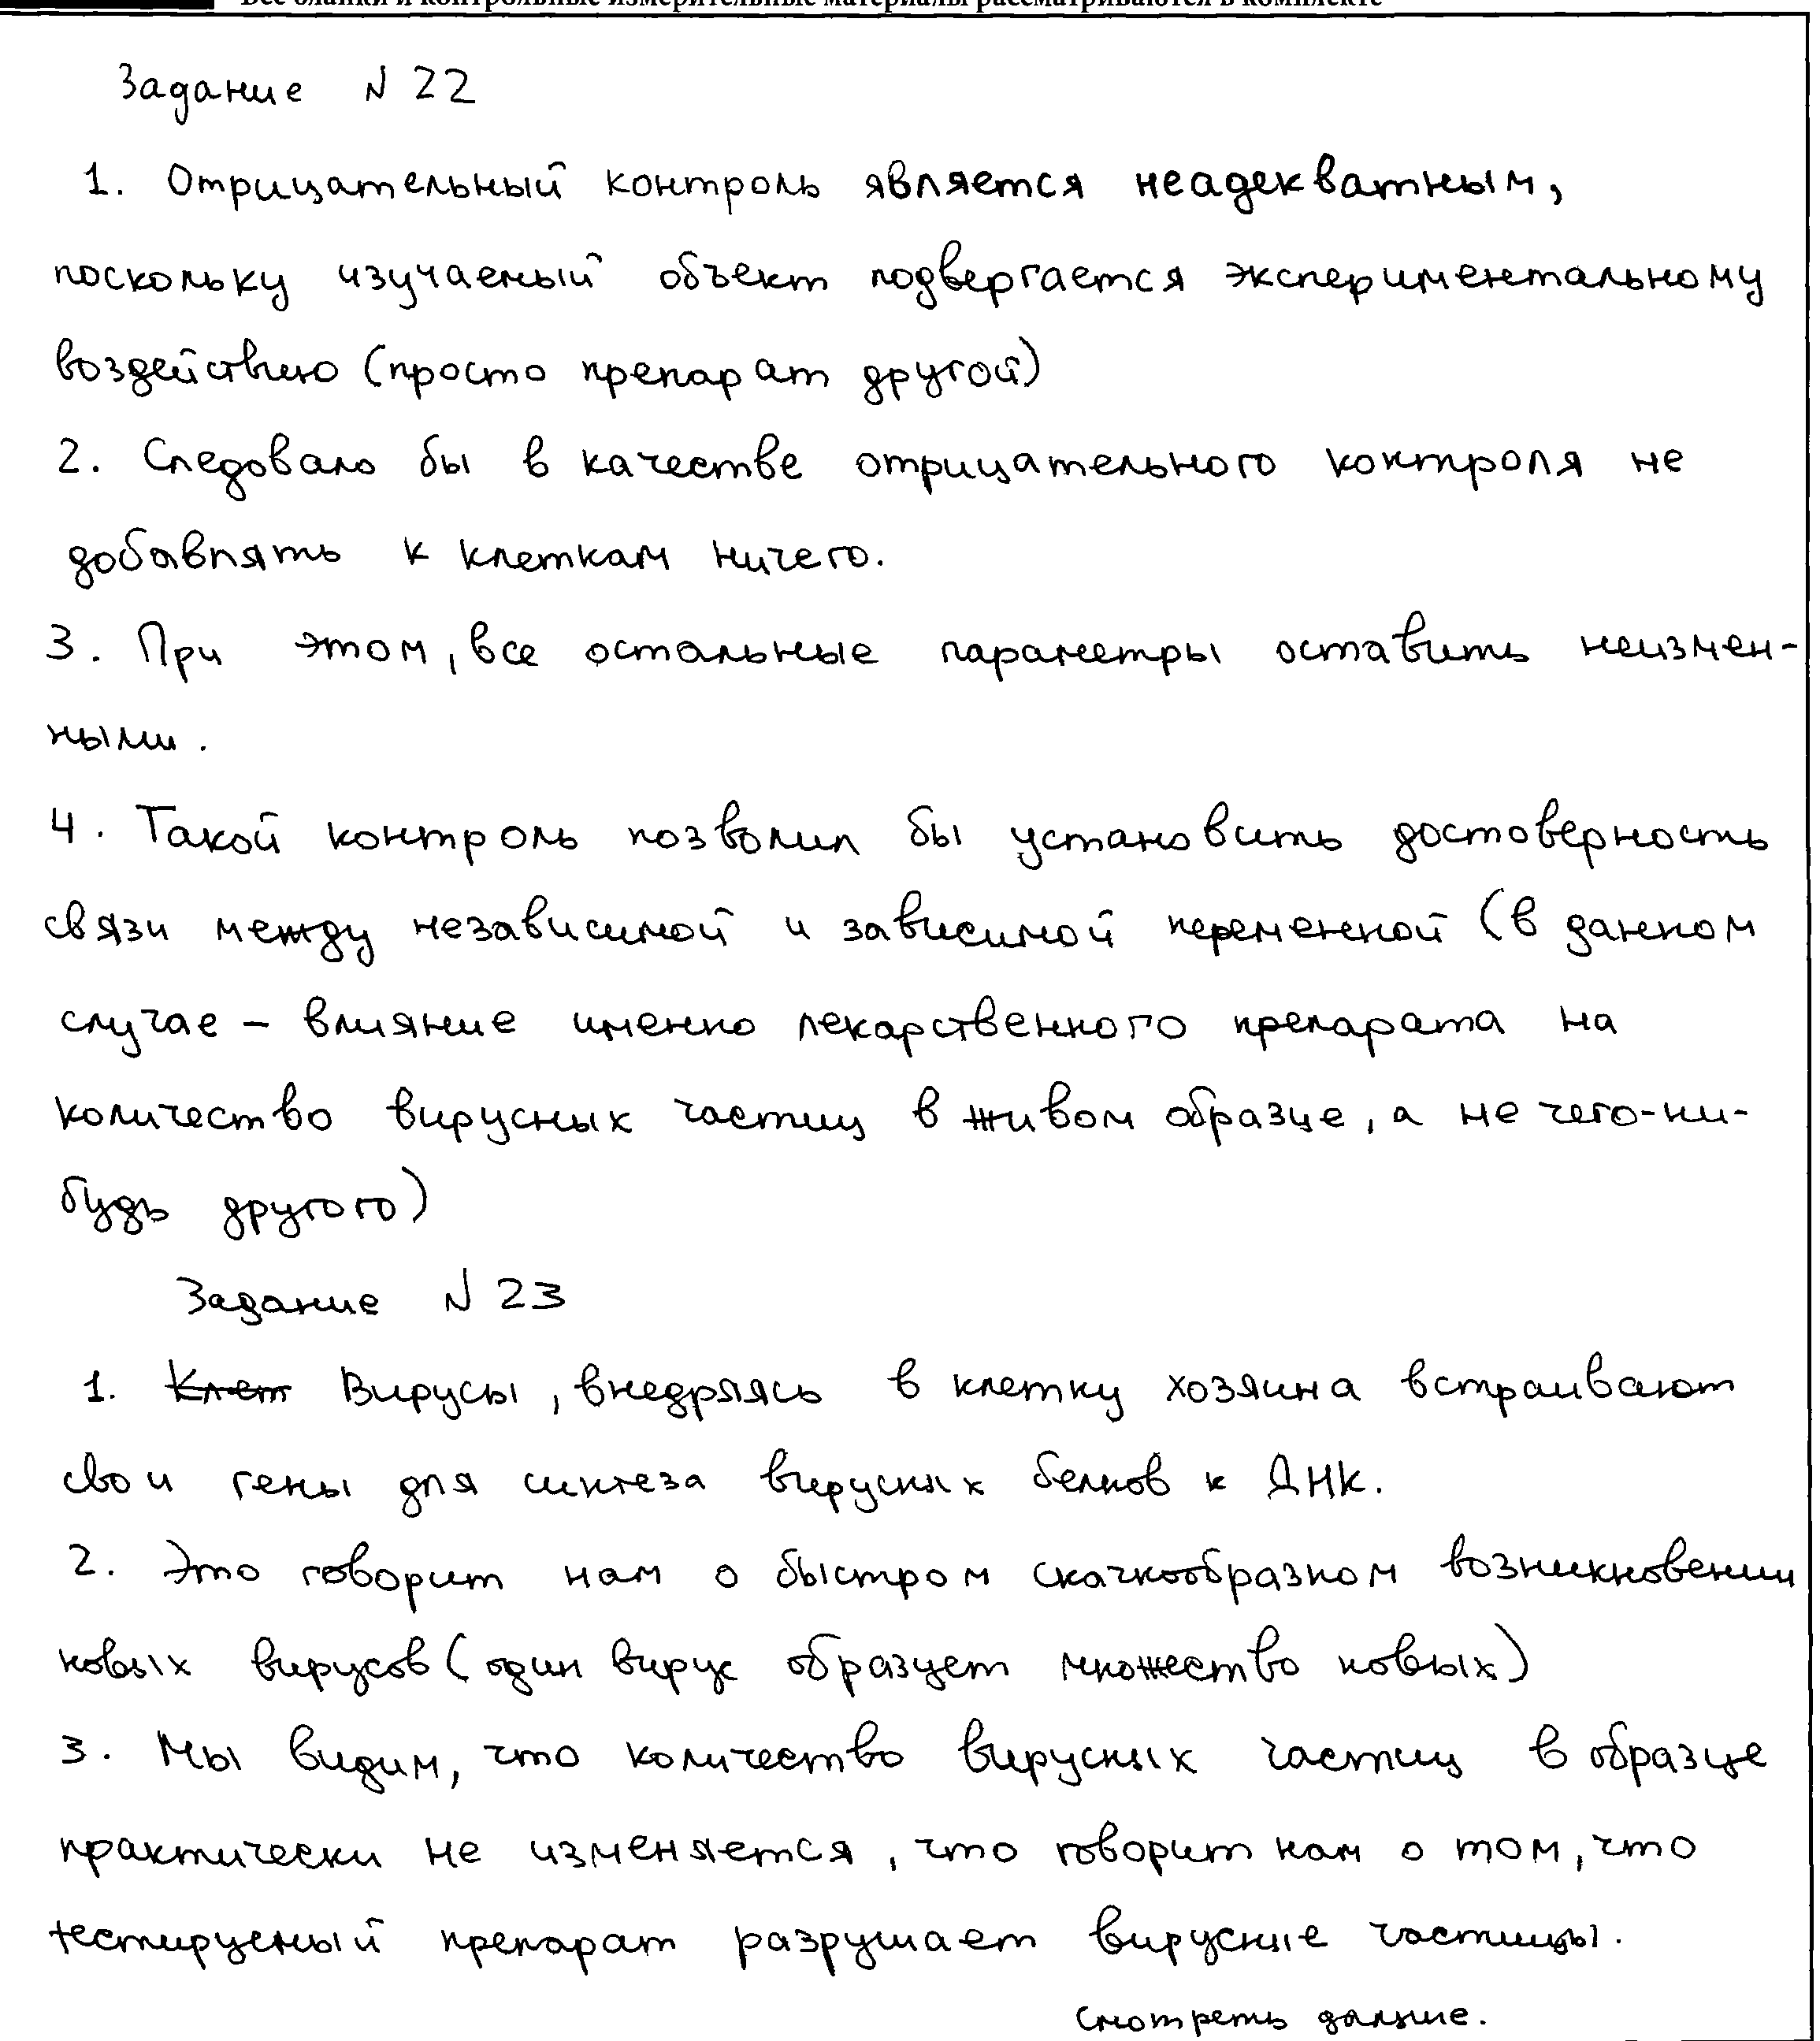 Все бланки и контрольные измерительные материалы рассматриваются в комплекте
Задание N 22
1. Отрицательный контроль является неадекватным,
поскольку изучаемый объект подвергается экспериментальному
воздействию (просто препарат другой)
2. Следовало бы в качестве отрицательного контроля не
добавлять к клеткам ничего.
3. При этом, все остальные параметры оставить неизмен-
ными.
4. Такой контроль позволил бы установить достоверность
связи между независимой и зависимой переменной (в данном
случае – влияние именно лекарственного препарата на
количество вирусных частиц в живом образце, а не чего-ни-
будь другого)
Задание N 23
1. Клет Вирусы, внедряясь в клетку хозяина встраивают
свои гены для синтеза вирусных белков к ДНК.
2. Это говорит нам о быстром скачкообразном возникновении
новых вирусов (один вирус образует множество новых)
3. Мы видим, что количество вирусных частиц в образце
практически не изменяется, что говорит нам о том, что
тестируемый препарат разрушает вирусные частицы.
смотреть дальше.